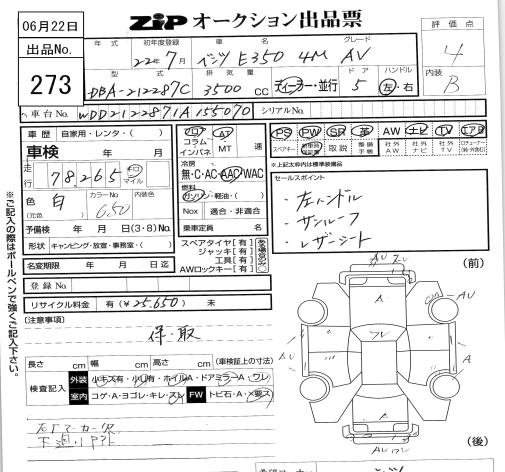 06月22日
ZIP オークション出品票
出品No.
273
評価点
4
内装
B
年式 初年度登録 車名 グレード
22年7月 ベンツ E350 4M AV
型式 排気量 ドア ハンドル
DBA-212287C 3500cc ディーラー・並行 5 左・右
車台No. WDD2122871A155070 シリアルNo.
車歴 自家用・レンタ・( )
車検 年 月
走行 78,265 キロ マイル
色 白 カラーNo 650 内装色
(元色 )
予備検 月 日(3・8)No.
形状 キャンピング・放宣・事務室・( )
フロア コラム インパネ AT MT 速
冷房
無・C・AC・AAC・WAC
燃料
ガソリン・軽油・( )
Nox 適合・非適合
乗車定員 名
PS PW SR 革 AW ナビ TV エアB
スペアキー 新車時保証書 取説 整備手帳 社外AW 社外ナビ 社外TV
※上記太枠内は標準装備品
セールスポイント
・左ハンドル
・サンルーフ
・レザーシート
スペアタイヤ[有]
ジャッキ[有]
工具[有]
AWロックキー[有]
名変期限 年 月 日迄
登録No.
リサイクル料金 有(¥25,650) 未
[注意事項]
保・取
長さ cm 幅 cm 高さ cm (車検証上の寸法)
検査記入 外装 小キズ有・小凹有・ホイルA・ドアミラーA・ワレ
室内 コゲ・A・ヨゴレ・キレ・スレ FW トビ石・A・×要ス
下廻りサビ
(前)
(後)
AU
A
A
AU
※ご記入の際はボールペンで強くご記入下さい。